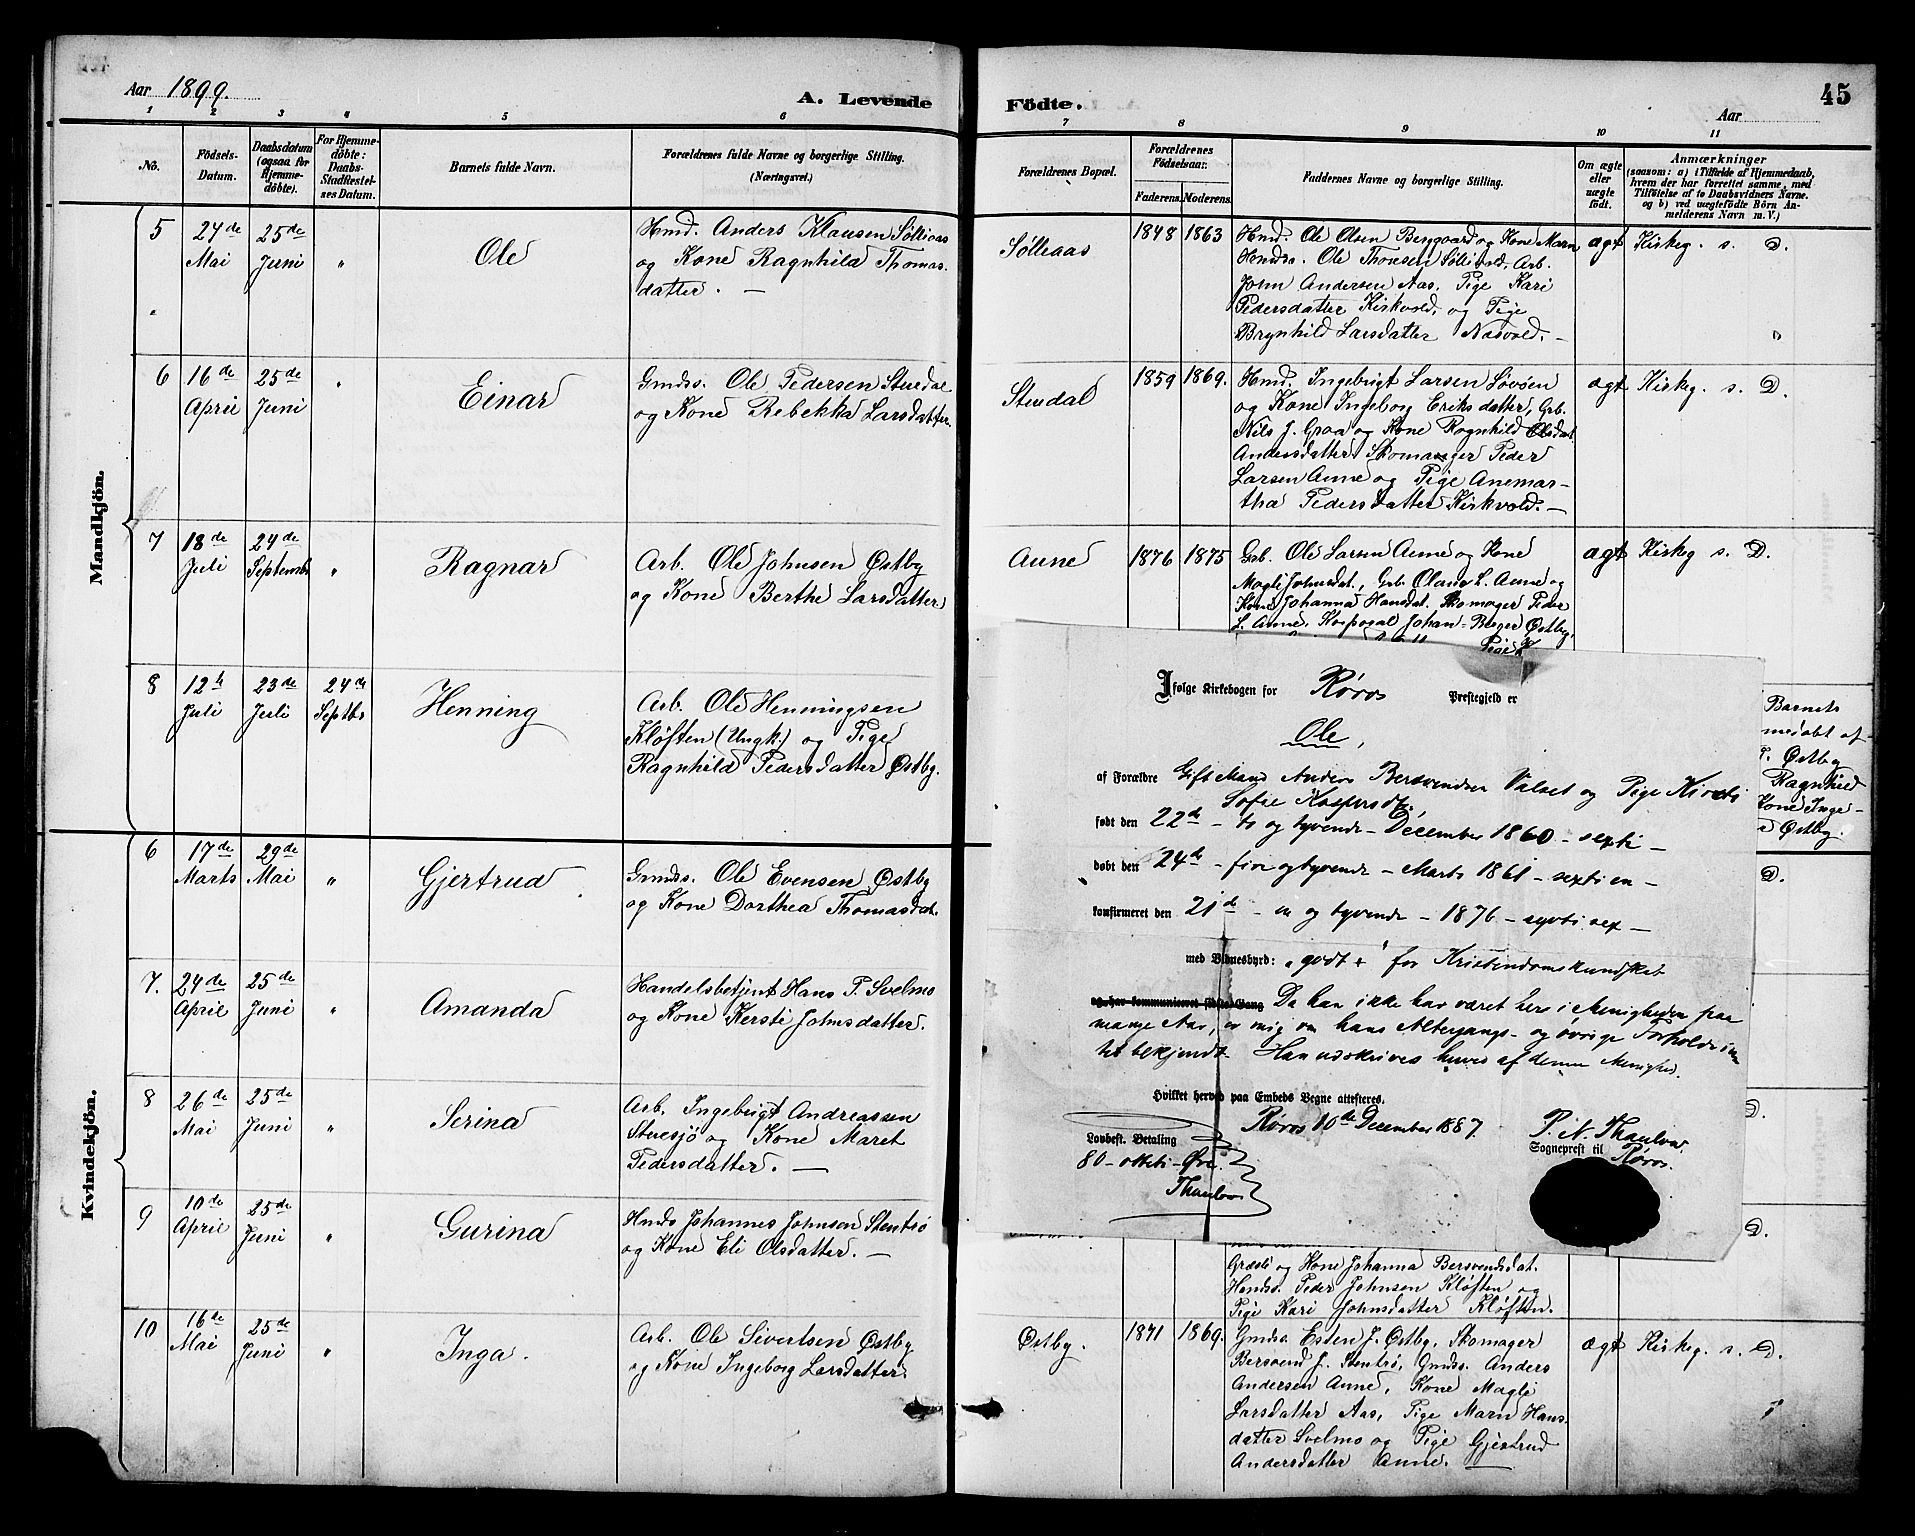 Aar 1899.
A. Levende
Födte.
45
Aar
1 2 3 4 5 6 7 8 9 10 11
No.
Födsels-
Datum.
Daabsdatum
(ogsaa for
Hjemme-
döbte).
For Hjemme-
döbte:
Daabs-
Stadfæstel-
ses Datum.
Barnets fulde Navn.
Forældrenes fulde Navne og borgerlige Stilling.
(Næringsvei.)
Forældrenes Bopæl.
Forældrenes
Födselsaar.
Faderens. Moderens.
Faddernes Navne og borgerlige Stilling.
Om ægte
eller
uægte
födt.
Anmærkninger
(saasom: a) i Tilfælde af Hjemmedaab,
hvem der har forrettet samme, med
Tilföielse af to Daabsvidners Navne.
og b) ved uægtefödte Börn An-
melderens Navn m. V.)
Mandkjön.
5
24de
Mai
25de
Juni
"
Ole
Hmd. Anders Klausen Sølliaas
og Kone Ragnhild Thomas-
datter. —
Sølleaas
1848 1863
Hmd. Ole Olsen Berggaard og Kone Marn
Hmds. Ole Thoresen Sollivold, Arb.
John Andersen Aas, Pige Kari
Pedersdatter Kirkvold, og Pige
Brynhild Larsdatter Nasvold. —
ægt Kirkeg. s. D.
6
16de
April
25de
Juni
"
Einar
Gmds. Ole Pedersen Stuedal
og Kone Rebekka Larsdatter.
Stuedal
1859 1869.
Hmd. Ingebrigt Larsen Løvøen
og Kone Ingeborg Eriksdatter, Grb.
Nils J. Graa og Kone Ragnhild Olsdat.
Andersdatter Skomager Peder
Larsen Aune og Pige Anemar-
tha Pedersdatter Kirkvold. —
ægt Kirkeg. s. D.
7
18de
Juli
24de
Septembr
"
Ragnar
Arb. Ole Johnsen Østby
og Kone Berthe Larsdatter
Aune
1876 1875
Grb. Ole Larsen Aune og Kone
Magli Johnsdat., Grb. Olaus L. Aune og
Kone Johanna Hansdat. Skomager Peder
L. Aune, Korporal Johan Berger Østby,
Pige
ægt Kirkeg s. D.
8
12te
Juli
23de
Juli
24de
Septbr
Henning
Arb. Ole Henningsen
Kløften (Ungk.) og Pige
Ragnhild Pedersdatter Østby.
Barnets
medøbt af
P. Østby
Ragnhild
Kone Inge-
Østby.
Kvindekjön.
6
17de
Marts
29de
Mai
"
Gjertrud
Gmds. Ole Evensen Østby
og Kone Dorthea Thomasdat.
D.
7.
24de
April
25de
Juni
"
Amanda
Handelsbetjent Hans P. Svelmo
og Kone Kersti Johnsdatter.
8
26de
Mai
25de
Juni
"
Serina
Arb. Ingebrigt Andreassen
Stuesjø og Kone Maret
Pedersdatter. —
D.
9
10de
April
25de
Juni
"
Gurina
Hmds Johannes Johnsen Stentrø
og Kone Eli Olsdatter. —
D.
Græsli og Kone Johanna Bersvendsdat.
Hmds. Peder Johnsen Kløften og
Pige Kari Johnsdatter Kløften.
10
16de
Mai
25de
Juni
"
Inga.
Arb. Ole Sivertsen Østby
og Kone Ingeborg Larsdatter.
Østby.
1871 1869.
Gmds. Esten J. Østby, Skomager
Bersvend J. Stentrø, Gmds. Anders
Andersen Aune, Kone Magli
Larsdatter Aas, Pige Marn Hans-
datter Svelmo og Pige Gjertrud
Andersdatter Aune. —
ægt Kirkeg. s. D.
Ifølge Kirkebogen for Røros Prestegjeld er
Ole,
af Forældre Gift Mand Anders Bersvendsen Valset og Pige Kirsti
Sofie Kaspersdt.
født den 22de – to og tyvende – December 1860 – sexti –
døbt den 24de – fire og tyvende – Marts 1861 – sextien –
konfirmeret den 21de – en og tyvende – 1876 – sytti sex –
med Vidnesbyrd: "godt +" for Kristendomskundskab
og har kommuniceret sidste Gang Da han ikke har været her i Menigheden paa
mange Aar, er mig om hans Altergangs- og øvrige Forholde in-
tet bekjendt. Han udskrives herved af denne Menighed.
Hvilket herved paa Embeds Vegne attesteres.
Røros 10de December 1887.
P. N. Thaulow.
Sogneprest til
Røros.
Lovbest. Betaling
80 – otteti – Øre.
Thaulow